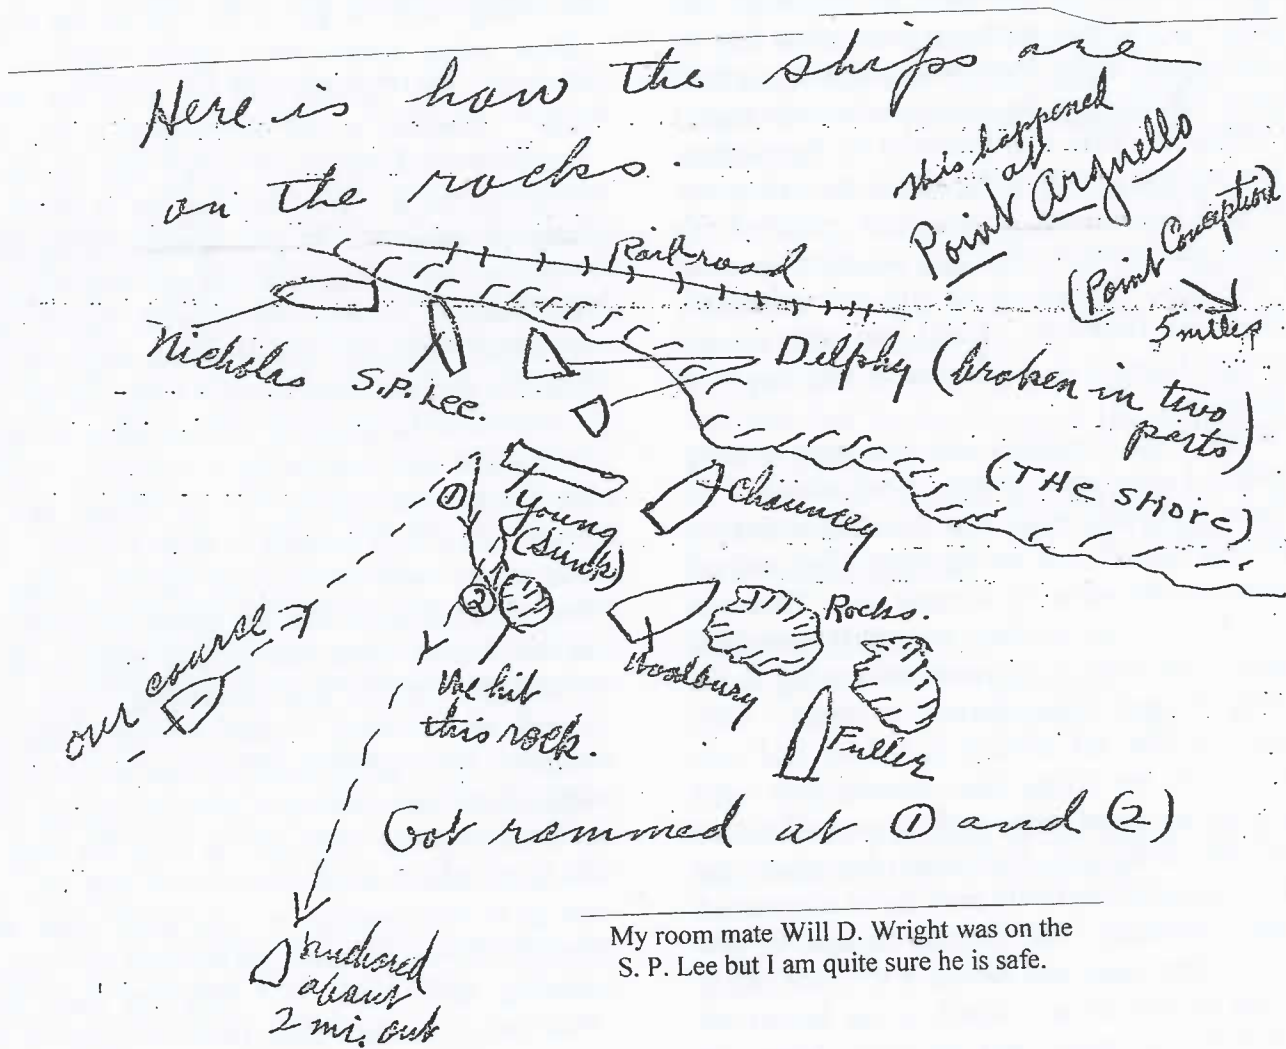 Here is how the ships are
on the rocks.
This happened
at
Point Arguello
(Point Conception)
5 miles
Railroad
Nicholas
S.P. Lee.
Delphy (broken in two
parts)
(THE SHORE)
①
Young
(Sunk)
Chauncey
②
our course →
We hit
this rock.
Woodbury
Rocks.
Fuller
Got rammed at ① and ②
anchored
about
2 mi. out
My room mate Will D. Wright was on the
S. P. Lee but I am quite sure he is safe.